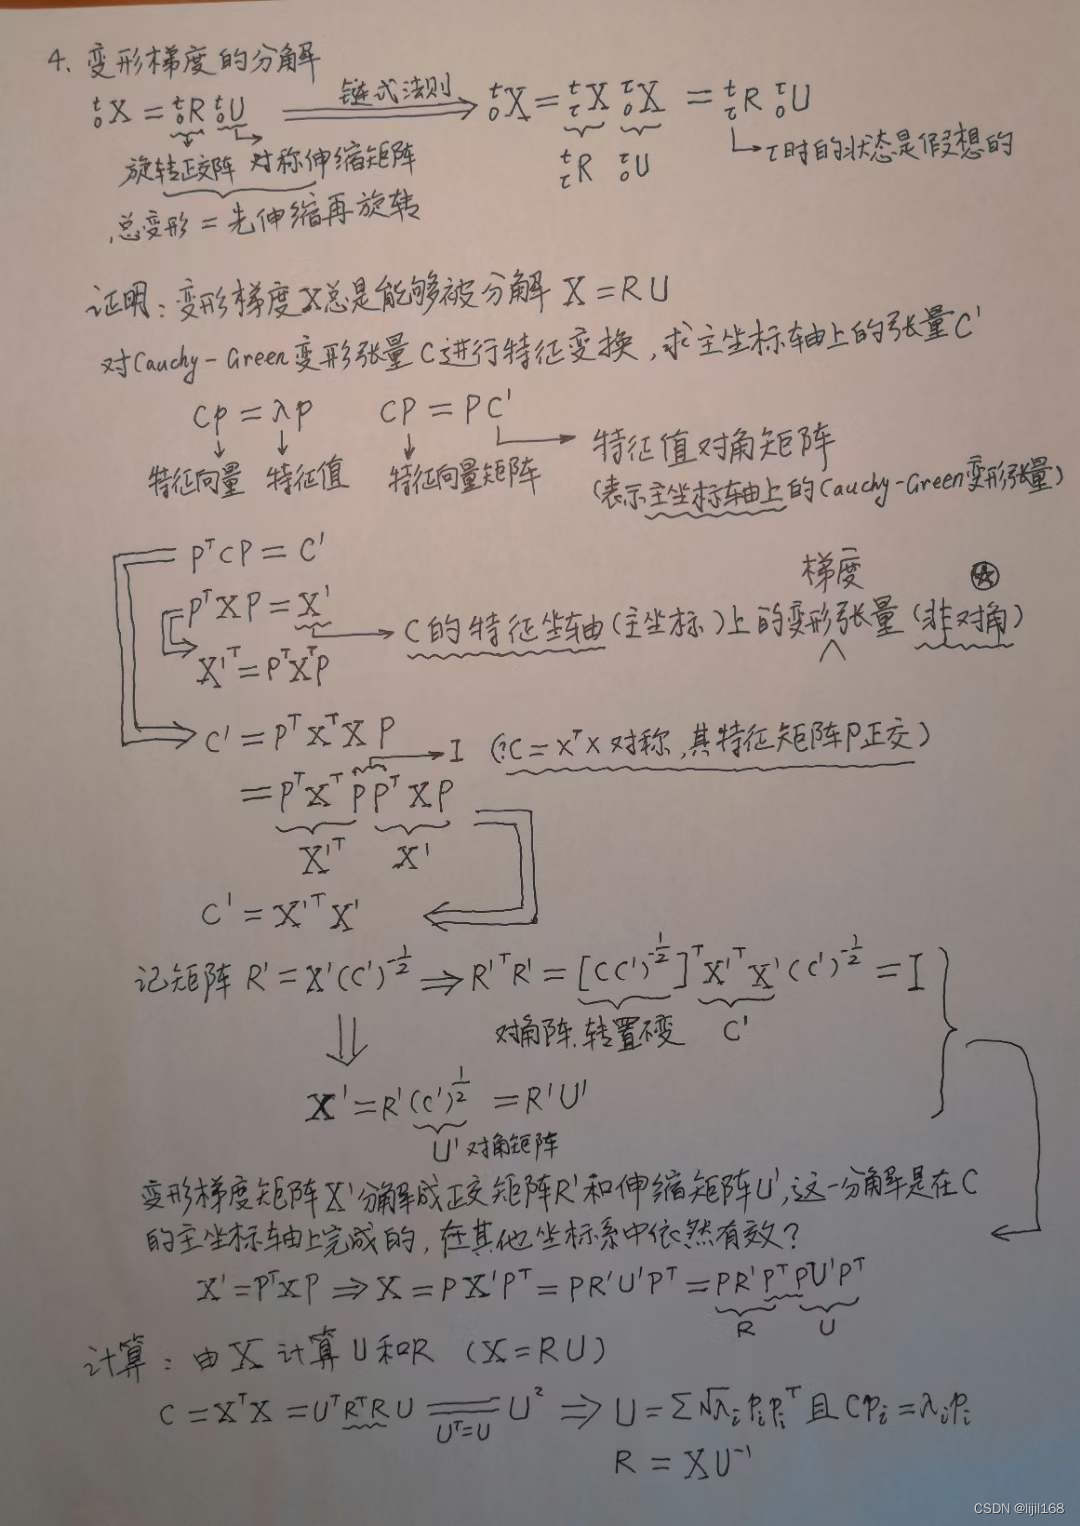 4、变形梯度的分解
ᵗ₀X = ᵗ₀R ᵗ₀U 链式法则 ᵗ₀X = ᵗτX τ₀X = ᵗτR τ₀U
旋转正交阵 对称伸缩矩阵 ᵗτR τ₀U τ时的状态是假想的
总变形 = 先伸缩再旋转
证明：变形梯度X总是能够被分解 X = RU
对Cauchy-Green变形张量C进行特征变换，求主坐标轴上的张量C'
Cp = λp CP = PC'
特征向量 特征值 特征向量矩阵 特征值对角矩阵
(表示主坐标轴上的Cauchy-Green变形张量)
PᵀCP = C'
PᵀXP = X' C的特征坐轴(主坐标)上的变形梯度张量(非对角)
X'ᵀ = PᵀXᵀP
C' = PᵀXᵀXP I (∵C = XᵀX 对称，其特征矩阵P正交)
= PᵀXᵀPPᵀXP
X'ᵀ X'
C' = X'ᵀX'
记矩阵 R' = X'(C')^(-1/2) ⇒ R'ᵀR' = [(C')^(-1/2)]ᵀX'ᵀX'(C')^(-1/2) = I
对角阵、转置不变 C'
X' = R'(C')^(1/2) = R'U'
U' 对角矩阵
变形梯度矩阵X'分解成正交矩阵R'和伸缩矩阵U'，这一分解是在C
的主坐标轴上完成的，在其他坐标系中依然有效？
X' = PᵀXP ⇒ X = PX'Pᵀ = PR'U'Pᵀ = PR'PᵀPU'Pᵀ
R U
计算：由X计算U和R (X = RU)
C = XᵀX = UᵀRᵀRU = U² ⇒ U = Σ√λᵢpᵢpᵢᵀ 且 Cpᵢ = λᵢpᵢ
Uᵀ=U
R = XU⁻¹
CSDN @lijil168